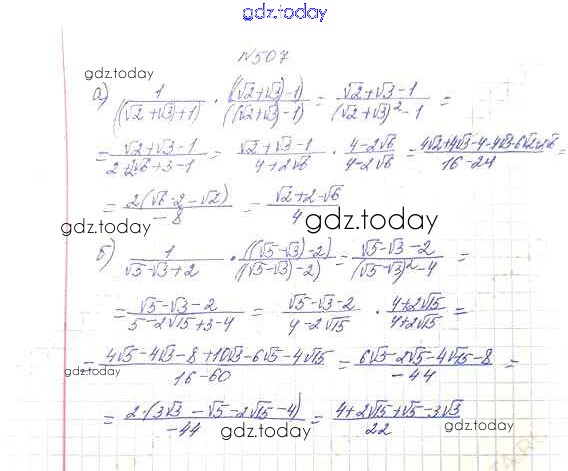 gdz.today
N507
gdz.today
а) 1/((√2+√3)+1) · ((√2+√3)-1)/((√2+√3)-1) = (√2+√3-1)/((√2+√3)²-1) =
= (√2+√3-1)/(2+2√6+3-1) = (√2+√3-1)/(4+2√6) · (4-2√6)/(4-2√6) =
= 2(√6-2-√2)/-8 = (√2+2-√6)/4
gdz.today
gdz.today
б) 1/(√5-√3+2) · ((√5-√3)-2)/((√5-√3)-2) = (√5-√3-2)/((√5-√3)²-4) =
gdz.today
= (√5-√3-2)/(5-2√15+3-4) = (√5-√3-2)/(4-2√15) · (4+2√15)/(4+2√15) =
= (4√5-4√3-8+10√3-6√5-4√15)/(16-60) = (6√3-2√5-4√15-8)/-44 =
gdz.today
= 2·(3√3-√5-2√15-4)/-44 = (4+2√15+√5-3√3)/22
gdz.today
gdz.today